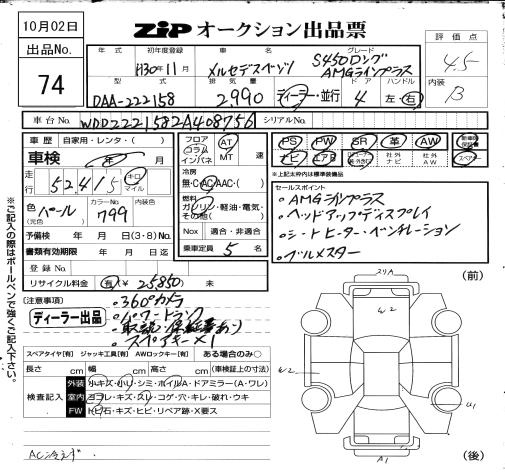 10月02日
ZIP オークション出品票
出品No.
74
年式
初年度登録
車名
グレード
H30年11月
メルセデスベンツ
S450ロング
AMGラインプラス
型式
排気量
ドア
ハンドル
DAA-222158
2,990
ディーラー・並行
4
左・右
評価点
4.5
内装
B
車台No.
WDD2221582A408756
シリアルNo.
車歴
自家用・レンタ・( )
車検
年 月
走行
52,415
キロ
マイル
色
パール
(元色)
カラーNo.
799
内装色
予備検 年 月 日(3・8)No.
書類有効期限 年 月 日迄
登録No.
リサイクル料金
有
¥ 25,850
フロア
コラム
インパネ
AT
MT
速
冷房
無・C・AC・AAC・( )
燃料
ガソリン・軽油・電気・
その他( )
Nox
適合・非適合
乗車定員
5
名
PS
PW
SR
革
AW
新車時保証書
ナビ
エアB
社外ナビ
社外AW
スペアキー
*上記太枠内は標準装備品
セールスポイント
・AMGラインプラス
・ヘッドアップディスプレイ
・シートヒーター・ベンチレーション
・ブルメスター
(注意事項)
ディーラー出品
・360°カメラ
・パワートランク
・取説・保証書あり
・スペアキー×1
スペアタイヤ[有] ジャッキ工具[有] AWロックキー[有] ある場合のみ〇
長さ cm
幅 cm
高さ cm
(車検証上の寸法)
検査記入
外装
小キズ・小リ・シミ・ホイルA・ドアミラー(A・ワレ)
室内
ヨゴレ・キズ・スレ・コゲ・穴・キレ・破れ・ウキ
FW
トビ石・キズ・ヒビ・リペア跡・X要ス
AC冷えず
※ご記入の際はボールペンで強くご記入下さい。
(前)
(後)
W2
W2
A1